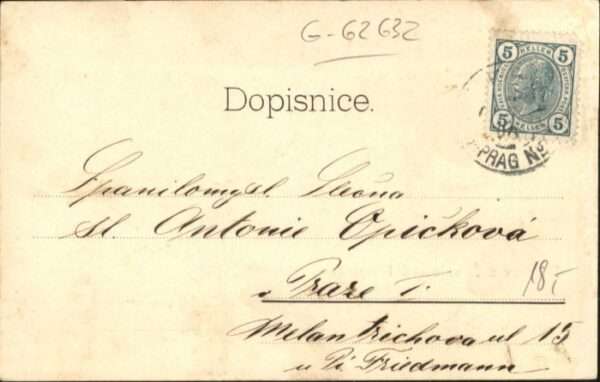 G-62632
5 HELLER 5
5 HELLER 5
PRAG
Dopisnice.
Spanilomysl. Slečna
sl. Antonie Opičková
v Praze I.
18,-
Melantrichova ul 15
u Pí Friedmann